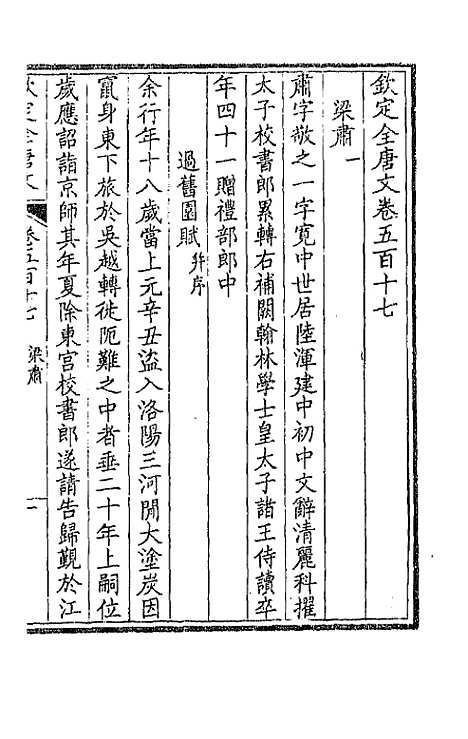 欽定全唐文卷五百十七
梁肅一
肅字敬之一字寛中世居陸渾建中初中文辭清麗科擢
太子校書郎累轉右補闕翰林學士皇太子諸王侍讀卒
年四十一贈禮部郎中
過舊園賦并序
余行年十八歲當上元辛丑盜入洛陽三河閒大塗炭因
竄身東下旅於吳越轉徙阨難之中者垂二十年上嗣位
歲應詔詣京師其年夏除東宮校書郎遂請告歸覲於江
欽定全唐文 卷五百十七 梁肅 一